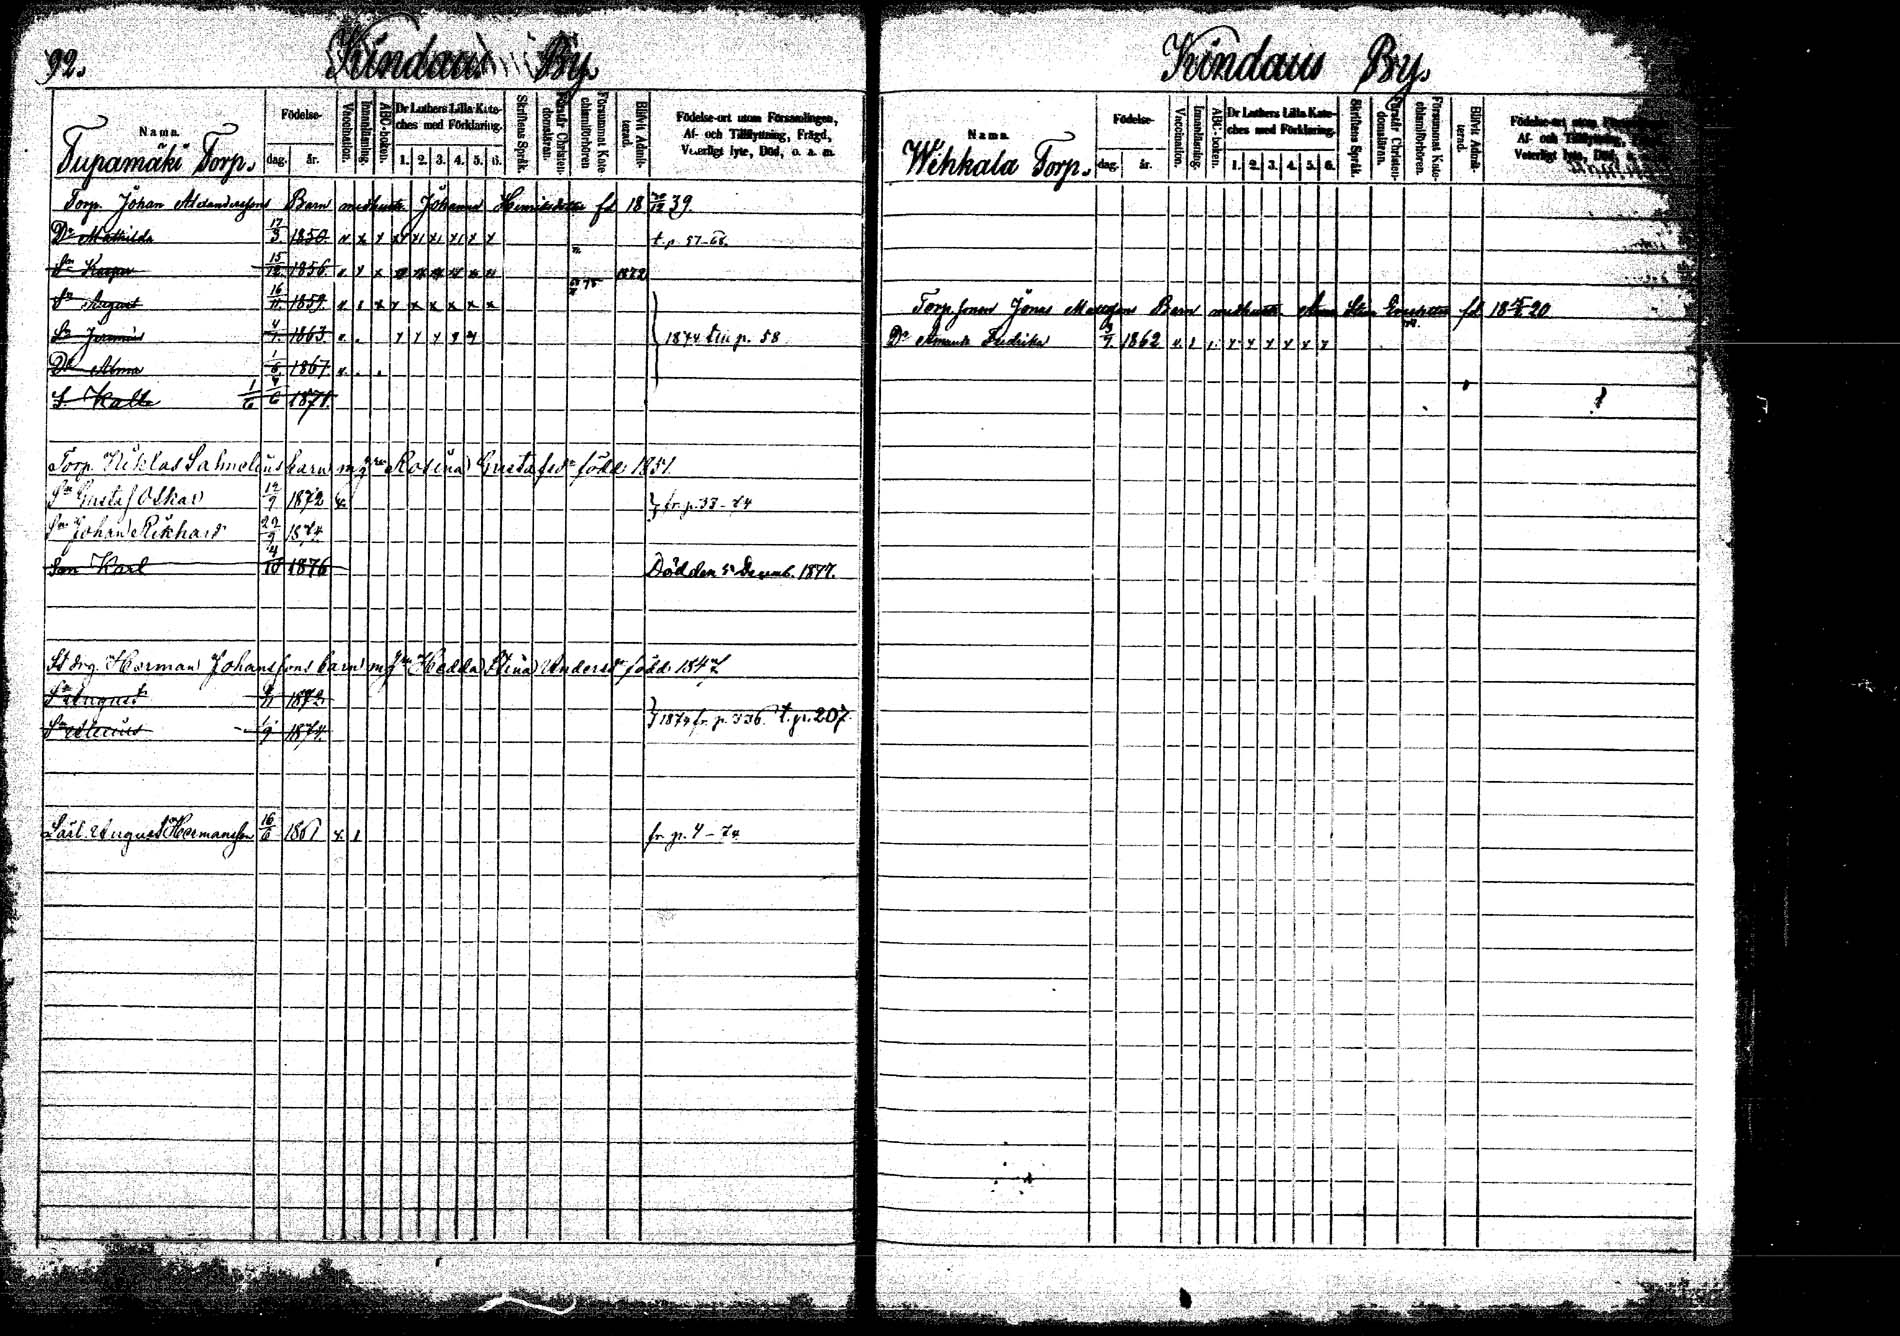 92.
Kindaus By.
Namn.
Födelse-
dag. år.
Vaccination.
Innanläsning.
ABC-boken.
Dr Luthers Lilla Kate-
ches med Förklaring.
1. 2. 3. 4. 5. 6.
Skriftens Språk.
Förstår Christen-
domsläran.
Försummat Kate-
chismiförhören
Blifvit Admit-
terad.
Födelse-ort utom Församlingen,
Af- och Tillflyttning, Frägd,
Veterligt lyte, Död, o. a. m.
Tupamäki Torp.
Torp. Johan Alexanderssons Barn med hustr. Johanna Henriksdotter fd 18 39.
Dr Mathilda 17/3 1850. t. p. 57-68.
Sn Kaspar 15/12 1856. 1872
Sn August 16/11 1859.
Sn Jeremias 4/7. 1863. 1874 till p. 58
Dr Alma 1/6 1867.
S. Kalle 1/6 4/6 1871.
Torp. Niklas Samelius barn m hu Rosina Gustafsdr född 1851.
Sn Gustaf Oskar 12/9 1872 fr. p. 33-74
Sn Johan Rikhard 22/9 1874
Son Karl 4/10 1876 Död den 5 Decemb. 1877.
St drg. Herman Johanssons barn m h Hedda Stina Andersdr född 1847
Sn August 1872
1874 fr. p. 336. t. p. 207.
1/9 1874.
Lärl. August Hermansson 16/6 1861 fr. p. 4-74
Kindaus By.
Namn.
Födelse-
dag. år.
Vaccination.
Innanläsning.
ABC-boken.
Dr Luthers Lilla Kate-
ches med Förklaring.
1. 2. 3. 4. 5. 6.
Skriftens Språk.
Förstår Christen-
domsläran.
Försummat Kate-
chismiförhören.
Blifvit Admit-
terad.
Födelse-ort utom
Af- och Tillflyttning,
Veterligt lyte, Död, o.
Wehkala Torp.
Torp. sonen Jonas Mattssons Barn med hustr. Anna Stina fd 18 20
Dr Amanda Fredrika 3/7. 1862